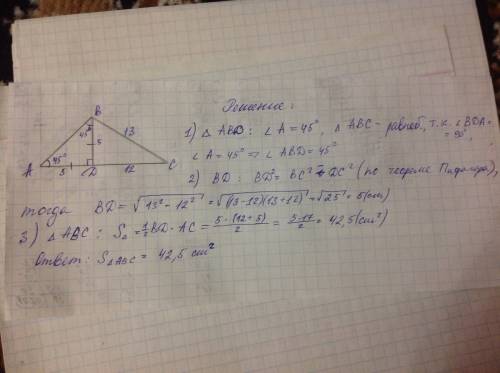 B
45°
13
5
A
45°
5
D
12
C
Решение:
1) △ ABD: ∠A = 45°, △ ABC - равноб., т.к. ∠BDA =
= 90°,
∠A = 45° ⇒ ∠ABD = 45°
2) BD: BD² = BC² - DC² (по теореме Пифагора),
тогда BD = √13² - 12² = √(13-12)(13+12) = √25 = 5 (см)
3) △ ABC: S△ = 1/2 BD · AC = 5 · (12 + 5)/2 = 5·17/2 = 42,5 (см²)
Ответ: S△ABC = 42,5 см²